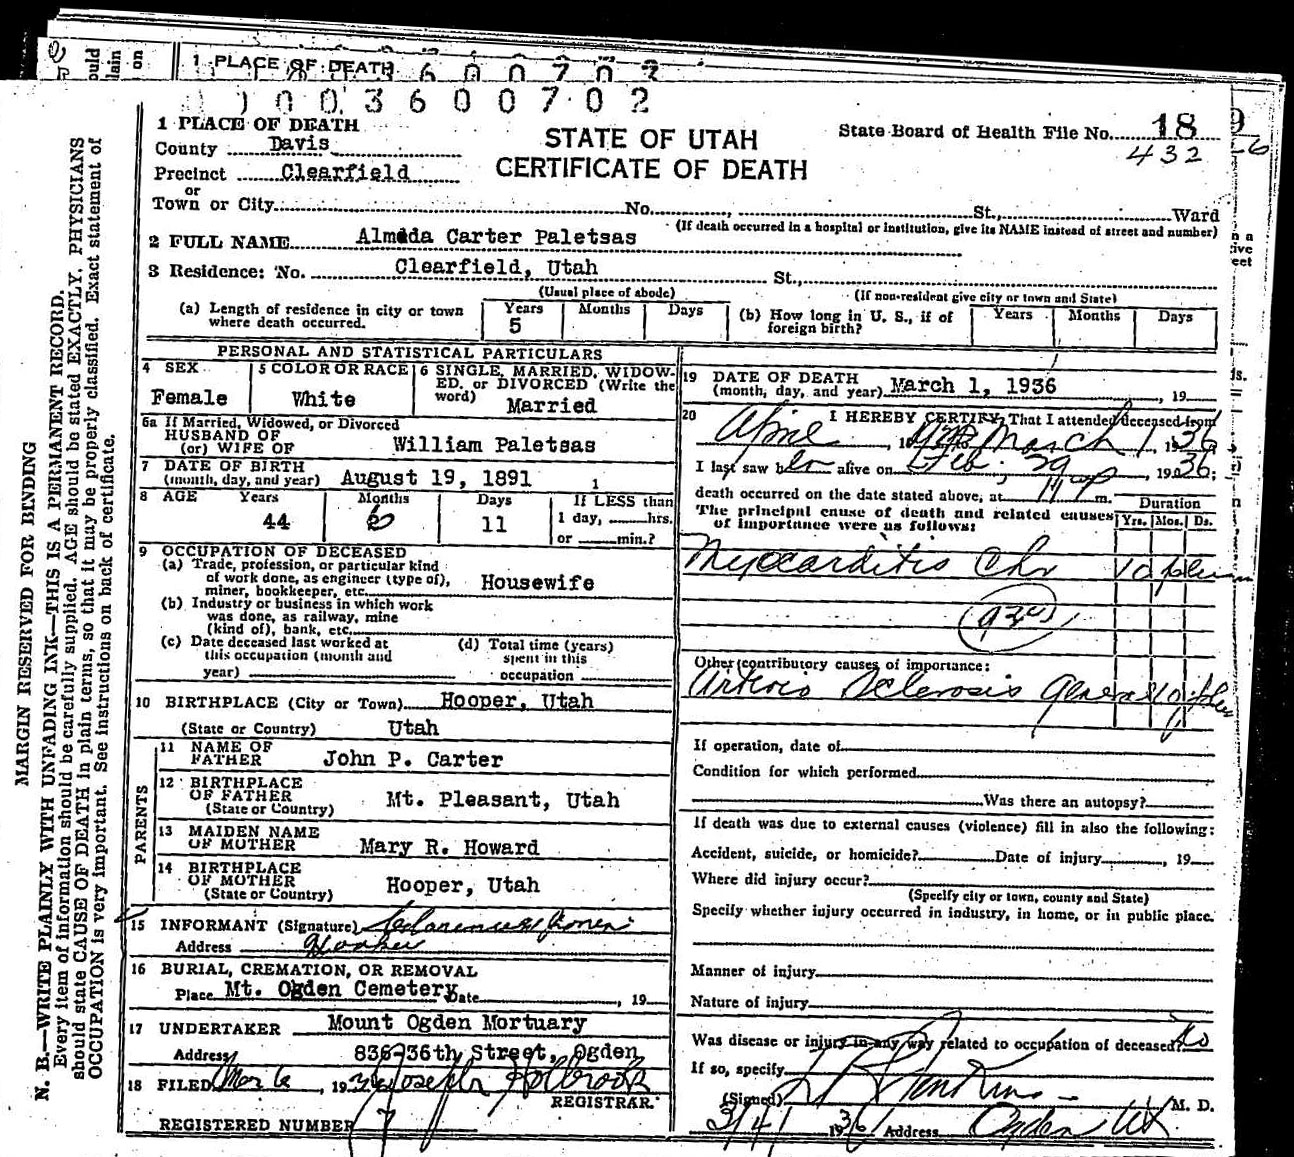 1 PLACE OF DEATH
003600702
1 PLACE OF DEATH
County Davis
STATE OF UTAH
CERTIFICATE OF DEATH
State Board of Health File No. 18
432
Precinct Clearfield
or
Town or City No. St., Ward
(If death occurred in a hospital or institution, give its NAME instead of street and number)
2 FULL NAME Almeda Carter Paletsas
3 Residence: No. Clearfield, Utah St.,
(Usual place of abode) (If non-resident give city or town and State)
(a) Length of residence in city or town where death occurred. Years 5 Months Days
(b) How long in U. S., if of foreign birth? Years Months Days
PERSONAL AND STATISTICAL PARTICULARS
4 SEX Female
5 COLOR OR RACE White
6 SINGLE, MARRIED, WIDOWED, or DIVORCED (Write the word) Married
6a If Married, Widowed, or Divorced
HUSBAND OF
(or) WIFE OF William Paletsas
7 DATE OF BIRTH
(month, day, and year) August 19, 1891
8 AGE Years 44 Months 6 Days 11
If LESS than 1 day, hrs.
or min.?
9 OCCUPATION OF DECEASED
(a) Trade, profession, or particular kind
of work done, as engineer (type of),
miner, bookkeeper, etc. Housewife
(b) Industry or business in which work
was done, as railway, mine
(kind of), bank, etc.
(c) Date deceased last worked at
this occupation (month and
year)
(d) Total time (years)
spent in this
occupation
10 BIRTHPLACE (City or Town) Hooper, Utah
(State or Country) Utah
PARENTS
11 NAME OF
FATHER John P. Carter
12 BIRTHPLACE
OF FATHER Mt. Pleasant, Utah
(State or Country)
13 MAIDEN NAME
OF MOTHER Mary R. Howard
14 BIRTHPLACE
OF MOTHER Hooper, Utah
(State or Country)
15 INFORMANT (Signature)
Address Hooper
16 BURIAL, CREMATION, OR REMOVAL
Place Mt. Ogden Cemetery Date , 19
17 UNDERTAKER Mount Ogden Mortuary
Address 836-36th Street, Ogden
18 FILED Mar 6, 1936 Joseph Holbrook
REGISTRAR.
REGISTERED NUMBER 7
19 DATE OF DEATH
(month, day, and year) March 1, 1936, 19
20 I HEREBY CERTIFY, That I attended deceased from
April , 19 March 1, 1936
I last saw her alive on Feb. 29, 1936;
death occurred on the date stated above, at 11 p m.
Duration
The principal cause of death and related causes
of importance were as follows:
Yrs. Mos. Ds.
Myocarditis Chr 10 plus
Other contributory causes of importance:
Arterio Sclerosis general 10 plus
If operation, date of
Condition for which performed
Was there an autopsy?
If death was due to external causes (violence) fill in also the following:
Accident, suicide, or homicide? Date of injury , 19
Where did injury occur?
(Specify city or town, county and State)
Specify whether injury occurred in industry, in home, or in public place.
Manner of injury
Nature of injury
Was disease or injury in any way related to occupation of deceased? No
If so, specify
(Signed) Jenkins M. D.
3/4/ 1936 Address Ogden Ut.
MARGIN RESERVED FOR BINDING
N. B.—WRITE PLAINLY WITH UNFADING INK—THIS IS A PERMANENT RECORD.
Every item of information should be carefully supplied. AGE should be stated EXACTLY. PHYSICIANS
should state CAUSE OF DEATH in plain terms, so that it may be properly classified. Exact statement of
OCCUPATION is very important. See instructions on back of certificate.